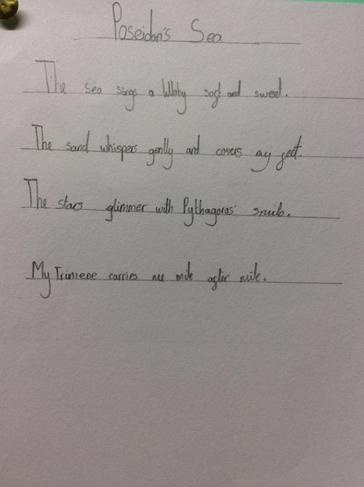 Poseidon's Sea
The sea sings a lullaby soft and sweet.
The sand whispers gently and covers my feet.
The stars glimmer with Pythagoras' smile.
My Trireme carries me mile after mile.